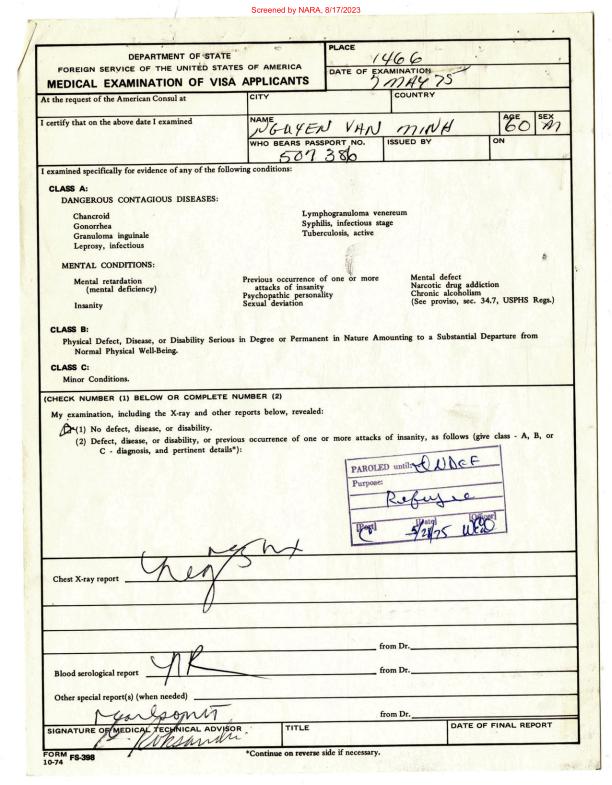 Screened by NARA, 8/17/2023
DEPARTMENT OF STATE
FOREIGN SERVICE OF THE UNITED STATES OF AMERICA
MEDICAL EXAMINATION OF VISA APPLICANTS
PLACE
1466
DATE OF EXAMINATION
7 MAY 75
At the request of the American Consul at
CITY
COUNTRY
I certify that on the above date I examined
NAME
NGUYEN VAN MINH
AGE
60
SEX
M
WHO BEARS PASSPORT NO.
507 386
ISSUED BY
ON
I examined specifically for evidence of any of the following conditions:
CLASS A:
DANGEROUS CONTAGIOUS DISEASES:
Chancroid
Gonorrhea
Granuloma inguinale
Leprosy, infectious
Lymphogranuloma venereum
Syphilis, infectious stage
Tuberculosis, active
MENTAL CONDITIONS:
Mental retardation
(mental deficiency)
Insanity
Previous occurrence of one or more
attacks of insanity
Psychopathic personality
Sexual deviation
Mental defect
Narcotic drug addiction
Chronic alcoholism
(See proviso, sec. 34.7, USPHS Regs.)
CLASS B:
Physical Defect, Disease, or Disability Serious in Degree or Permanent in Nature Amounting to a Substantial Departure from
Normal Physical Well-Being.
CLASS C:
Minor Conditions.
(CHECK NUMBER (1) BELOW OR COMPLETE NUMBER (2)
My examination, including the X-ray and other reports below, revealed:
(1) No defect, disease, or disability.
(2) Defect, disease, or disability, or previous occurrence of one or more attacks of insanity, as follows (give class - A, B, or
C - diagnosis, and pertinent details*):
PAROLED until: INDEF
Purpose:
Refugee
[Port] [Date] [Officer]
5/21/75
Chest X-ray report neg
from Dr.
Blood serological report NR
from Dr.
Other special report(s) (when needed)
from Dr.
SIGNATURE OF MEDICAL TECHNICAL ADVISOR
TITLE
DATE OF FINAL REPORT
FORM FS-398
10-74
*Continue on reverse side if necessary.